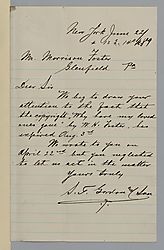 New York June 24/89
Mr. Morrison Foster
Glenfield Pa
Dear Sir
We beg to draw your
attention to the fact that
the copyright "Why have my loved
ones gone" by S. C. Foster, has
expired Aug. 3d
We wrote to you on
April 22nd but you neglected
to let us act in the matter
Yours truly
S. T. Gordon & Son